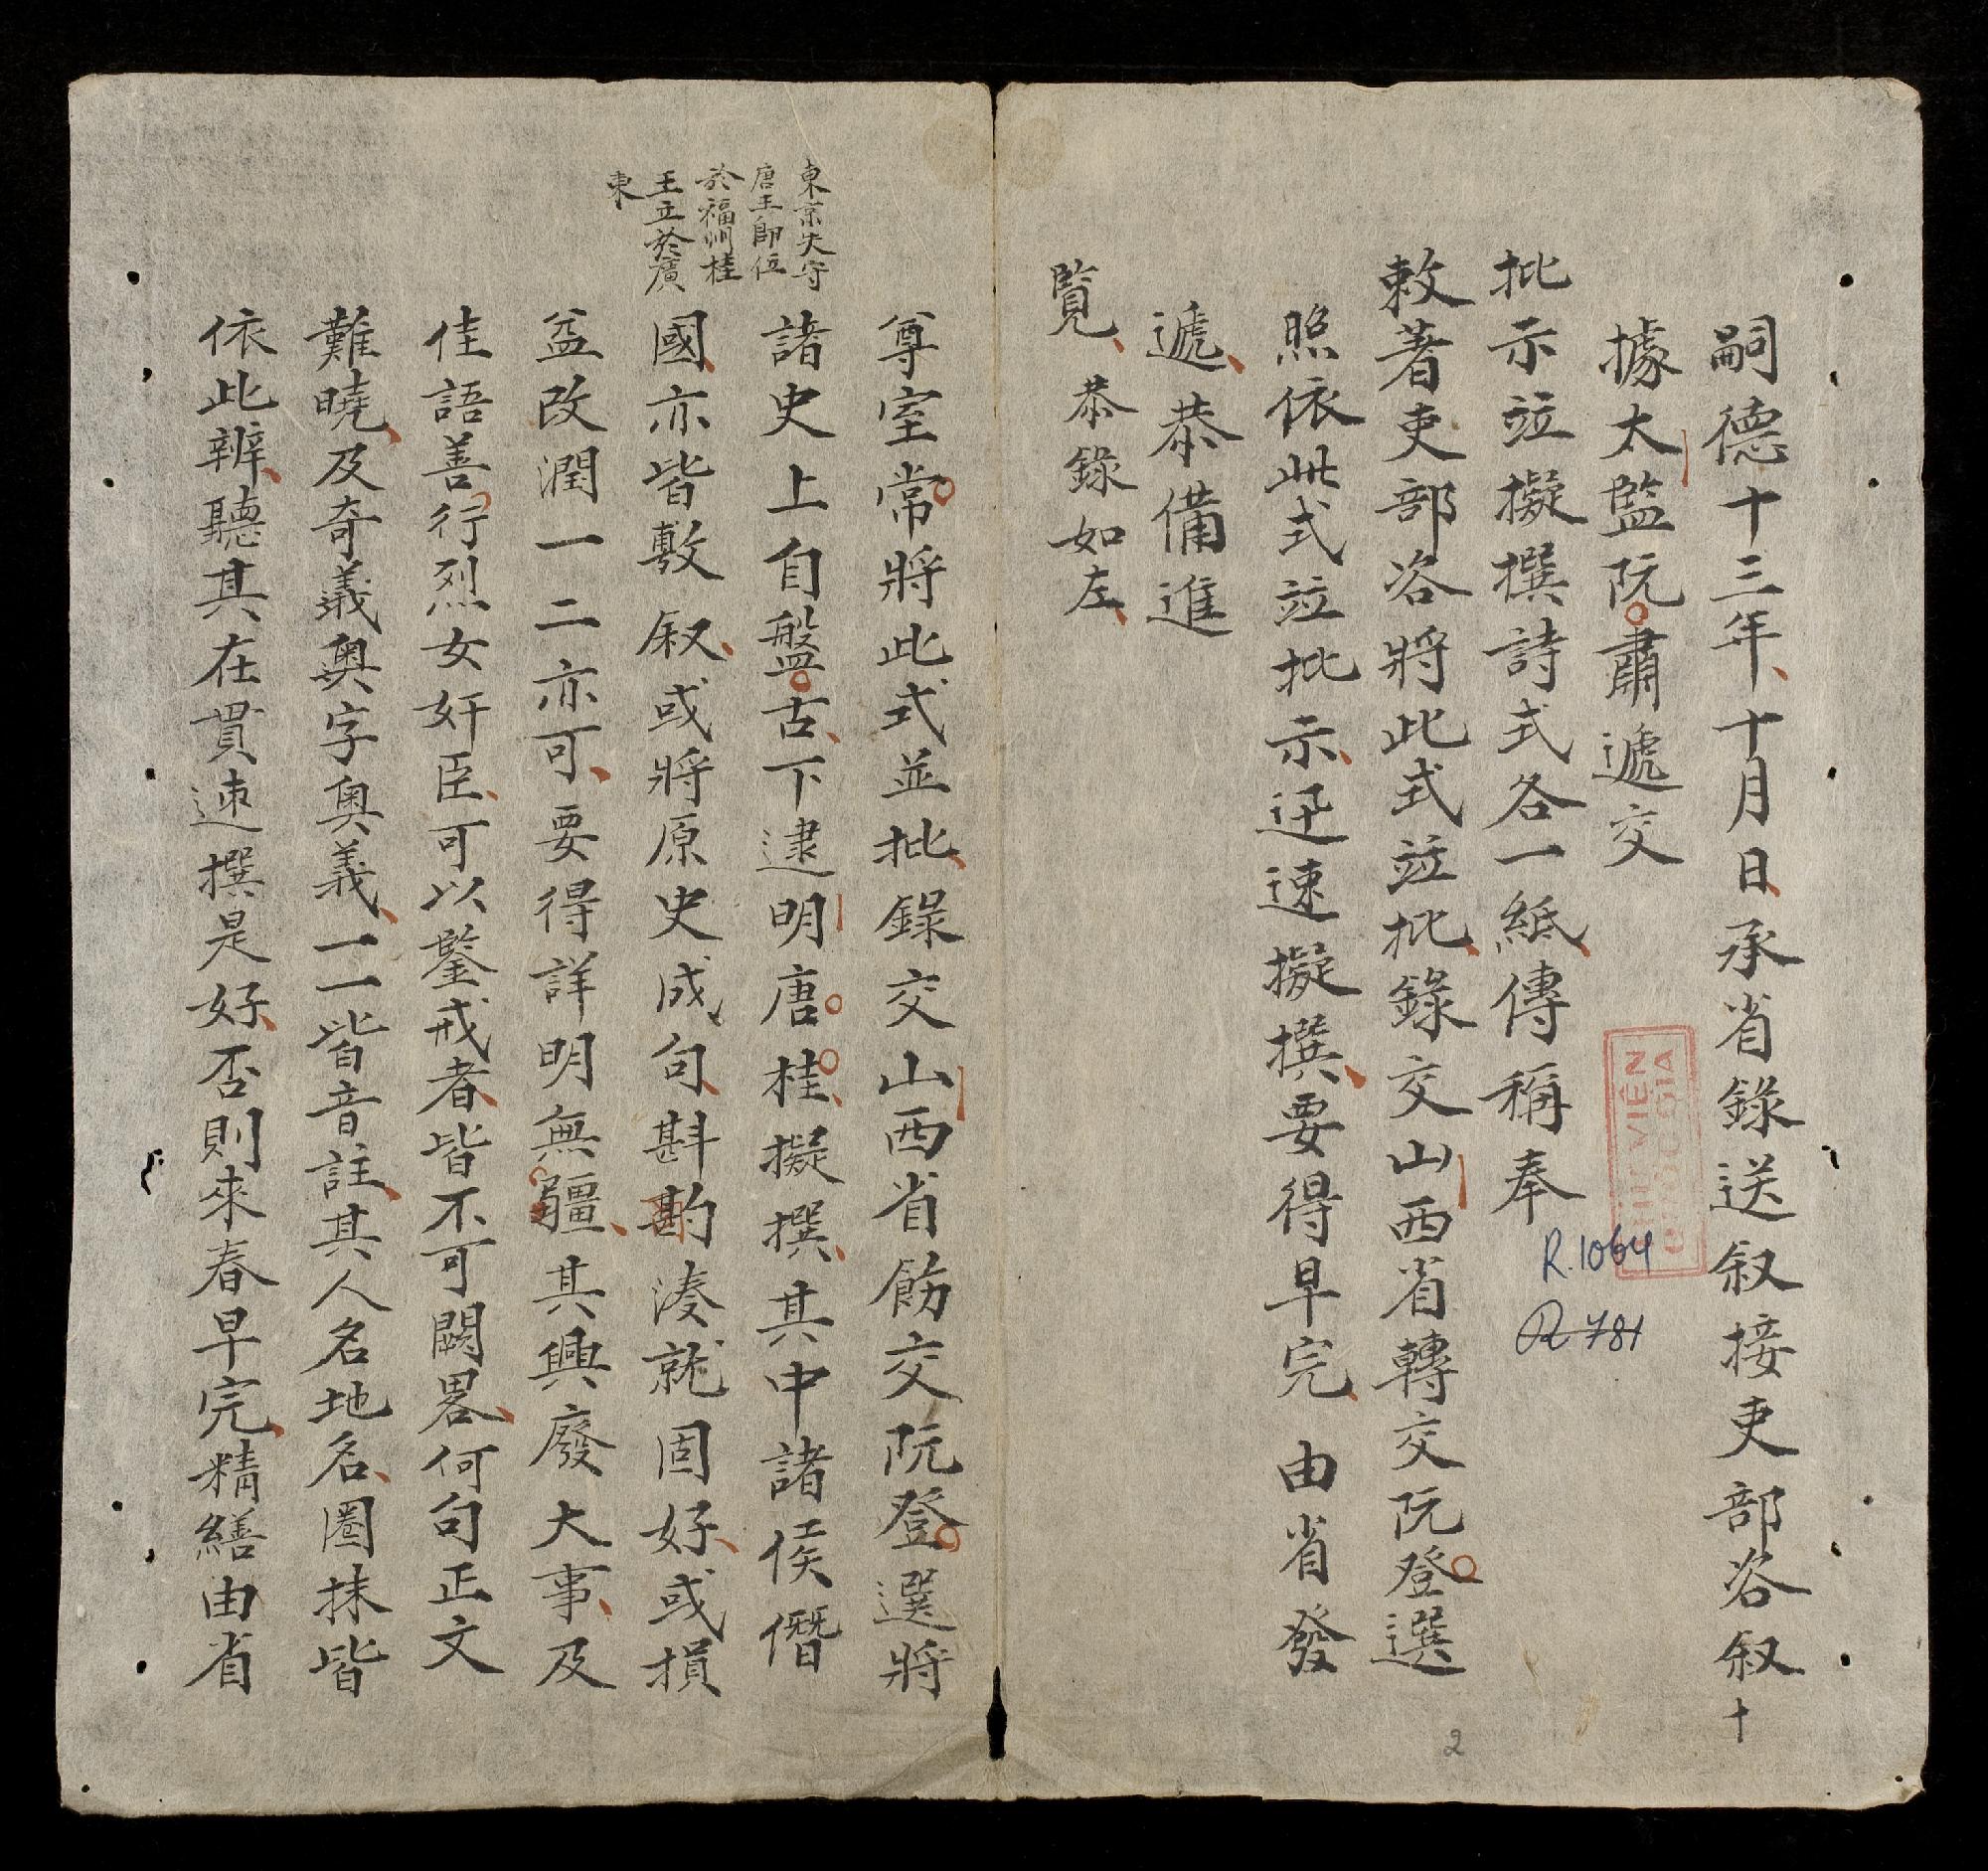 嗣德十三年十月日承省錄送叙接吏部咨叙十
據太監阮肅遞交
批示竝擬撰詩式各一紙傳稱奉
敕著吏部咨將此式竝批錄交山西省轉交阮登選
照依此式竝批示迅速擬撰要得早完由省發
遞恭備進
覧恭錄如左
尊室常將此式並批錄交山西省飭交阮登選將
諸史上自盤古下逮明唐桂擬撰其中諸侯僭
國亦皆敷叙或將原史成句斟酌湊就固好或損
益改潤一二亦可要得詳明無疆其興廢大事及
佳語善行烈女奸臣可以鑒戒者皆不可闕畧何句正文
難曉及奇義奧字奧義一一皆音註其人名地名圏抹皆
依此辨聽其在貫速撰是好否則來春早完精繕由省
東京失守
唐王即位
於福州桂
王立於廣
東
THƯ VIỆN
QUỐC GIA
R.1064
R 781
2